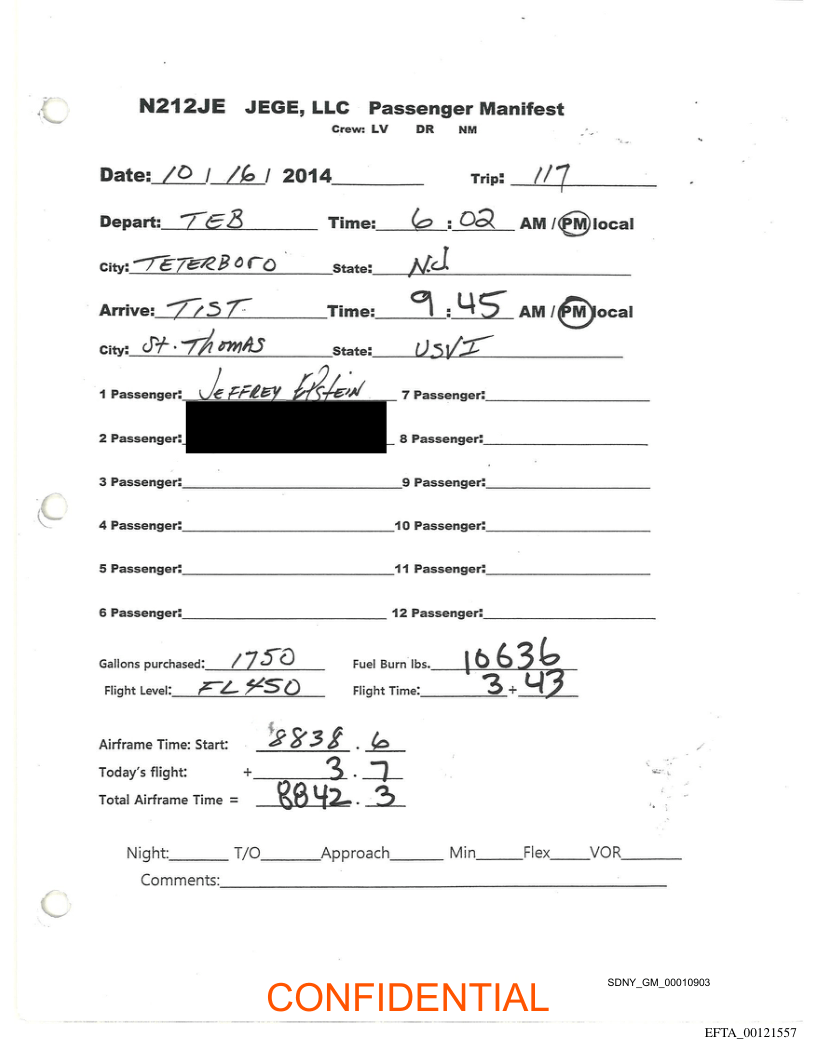 N212JE JEGE, LLC Passenger Manifest
Crew: LV DR NM
Date: 10 / 16 / 2014 Trip: 117
Depart: TEB Time: 6 : 02 AM / PM local
City: TETERBORO State: N.J.
Arrive: TIST Time: 9 : 45 AM / PM local
City: St. Thomas State: USVI
1 Passenger: JEFFREY EPSTEIN 7 Passenger:
2 Passenger: 8 Passenger:
3 Passenger: 9 Passenger:
4 Passenger: 10 Passenger:
5 Passenger: 11 Passenger:
6 Passenger: 12 Passenger:
Gallons purchased: 1750 Fuel Burn lbs. 10636
Flight Level: FL450 Flight Time: 3 + 43
Airframe Time: Start: 8838 . 6
Today's flight: + 3 . 7
Total Airframe Time = 8842 . 3
Night: T/O Approach Min Flex VOR
Comments:
SDNY_GM_00010903
CONFIDENTIAL
EFTA_00121557